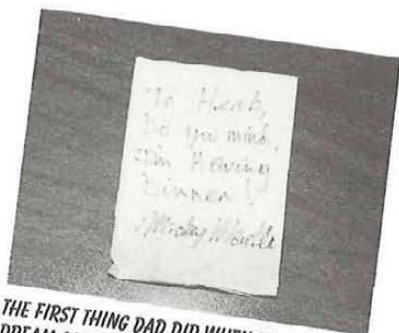 To Hank,
Do you mind,
I'm Having
Dinner!
Mickey Mantle
THE FIRST THING DAD DID WHEN
DREAM